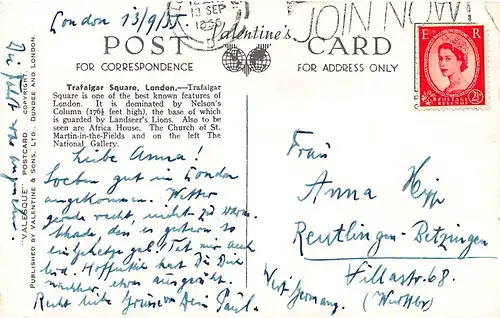 London 13/9/55
13 SEP
1955
JOIN NOW
Valentine's
POST CARD
FOR CORRESPONDENCE
FOR ADDRESS ONLY
E R
POSTAGE REVENUE
2½D
Trafalgar Square, London.—Trafalgar
Square is one of the best known features of
London. It is dominated by Nelson's
Column (176½ feet high), the base of which
is guarded by Landseer's Lions. Also to be
seen are Africa House. The Church of St.
Martin-in-the-Fields and on the left The
National, Gallery.
"VALESQUE" POSTCARD. COPYRIGHT.
PUBLISHED BY VALENTINE & SONS, LTD., DUNDEE AND LONDON.
Liebe Anna!
Soeben gut in London
angekommen. Wetter
gerade recht, nicht zu warm.
Schade, dass es gestern so
Tat mir auch
leid. Hoffentlich hast Du Dich
nachher, etwas ausgeruht.
Recht liebe Grüsse Dein Paul.
Die Fahrt war angenehm.
Frau
Anna
Reutlingen-Betzingen
68.
West Germany.
(Württbg)